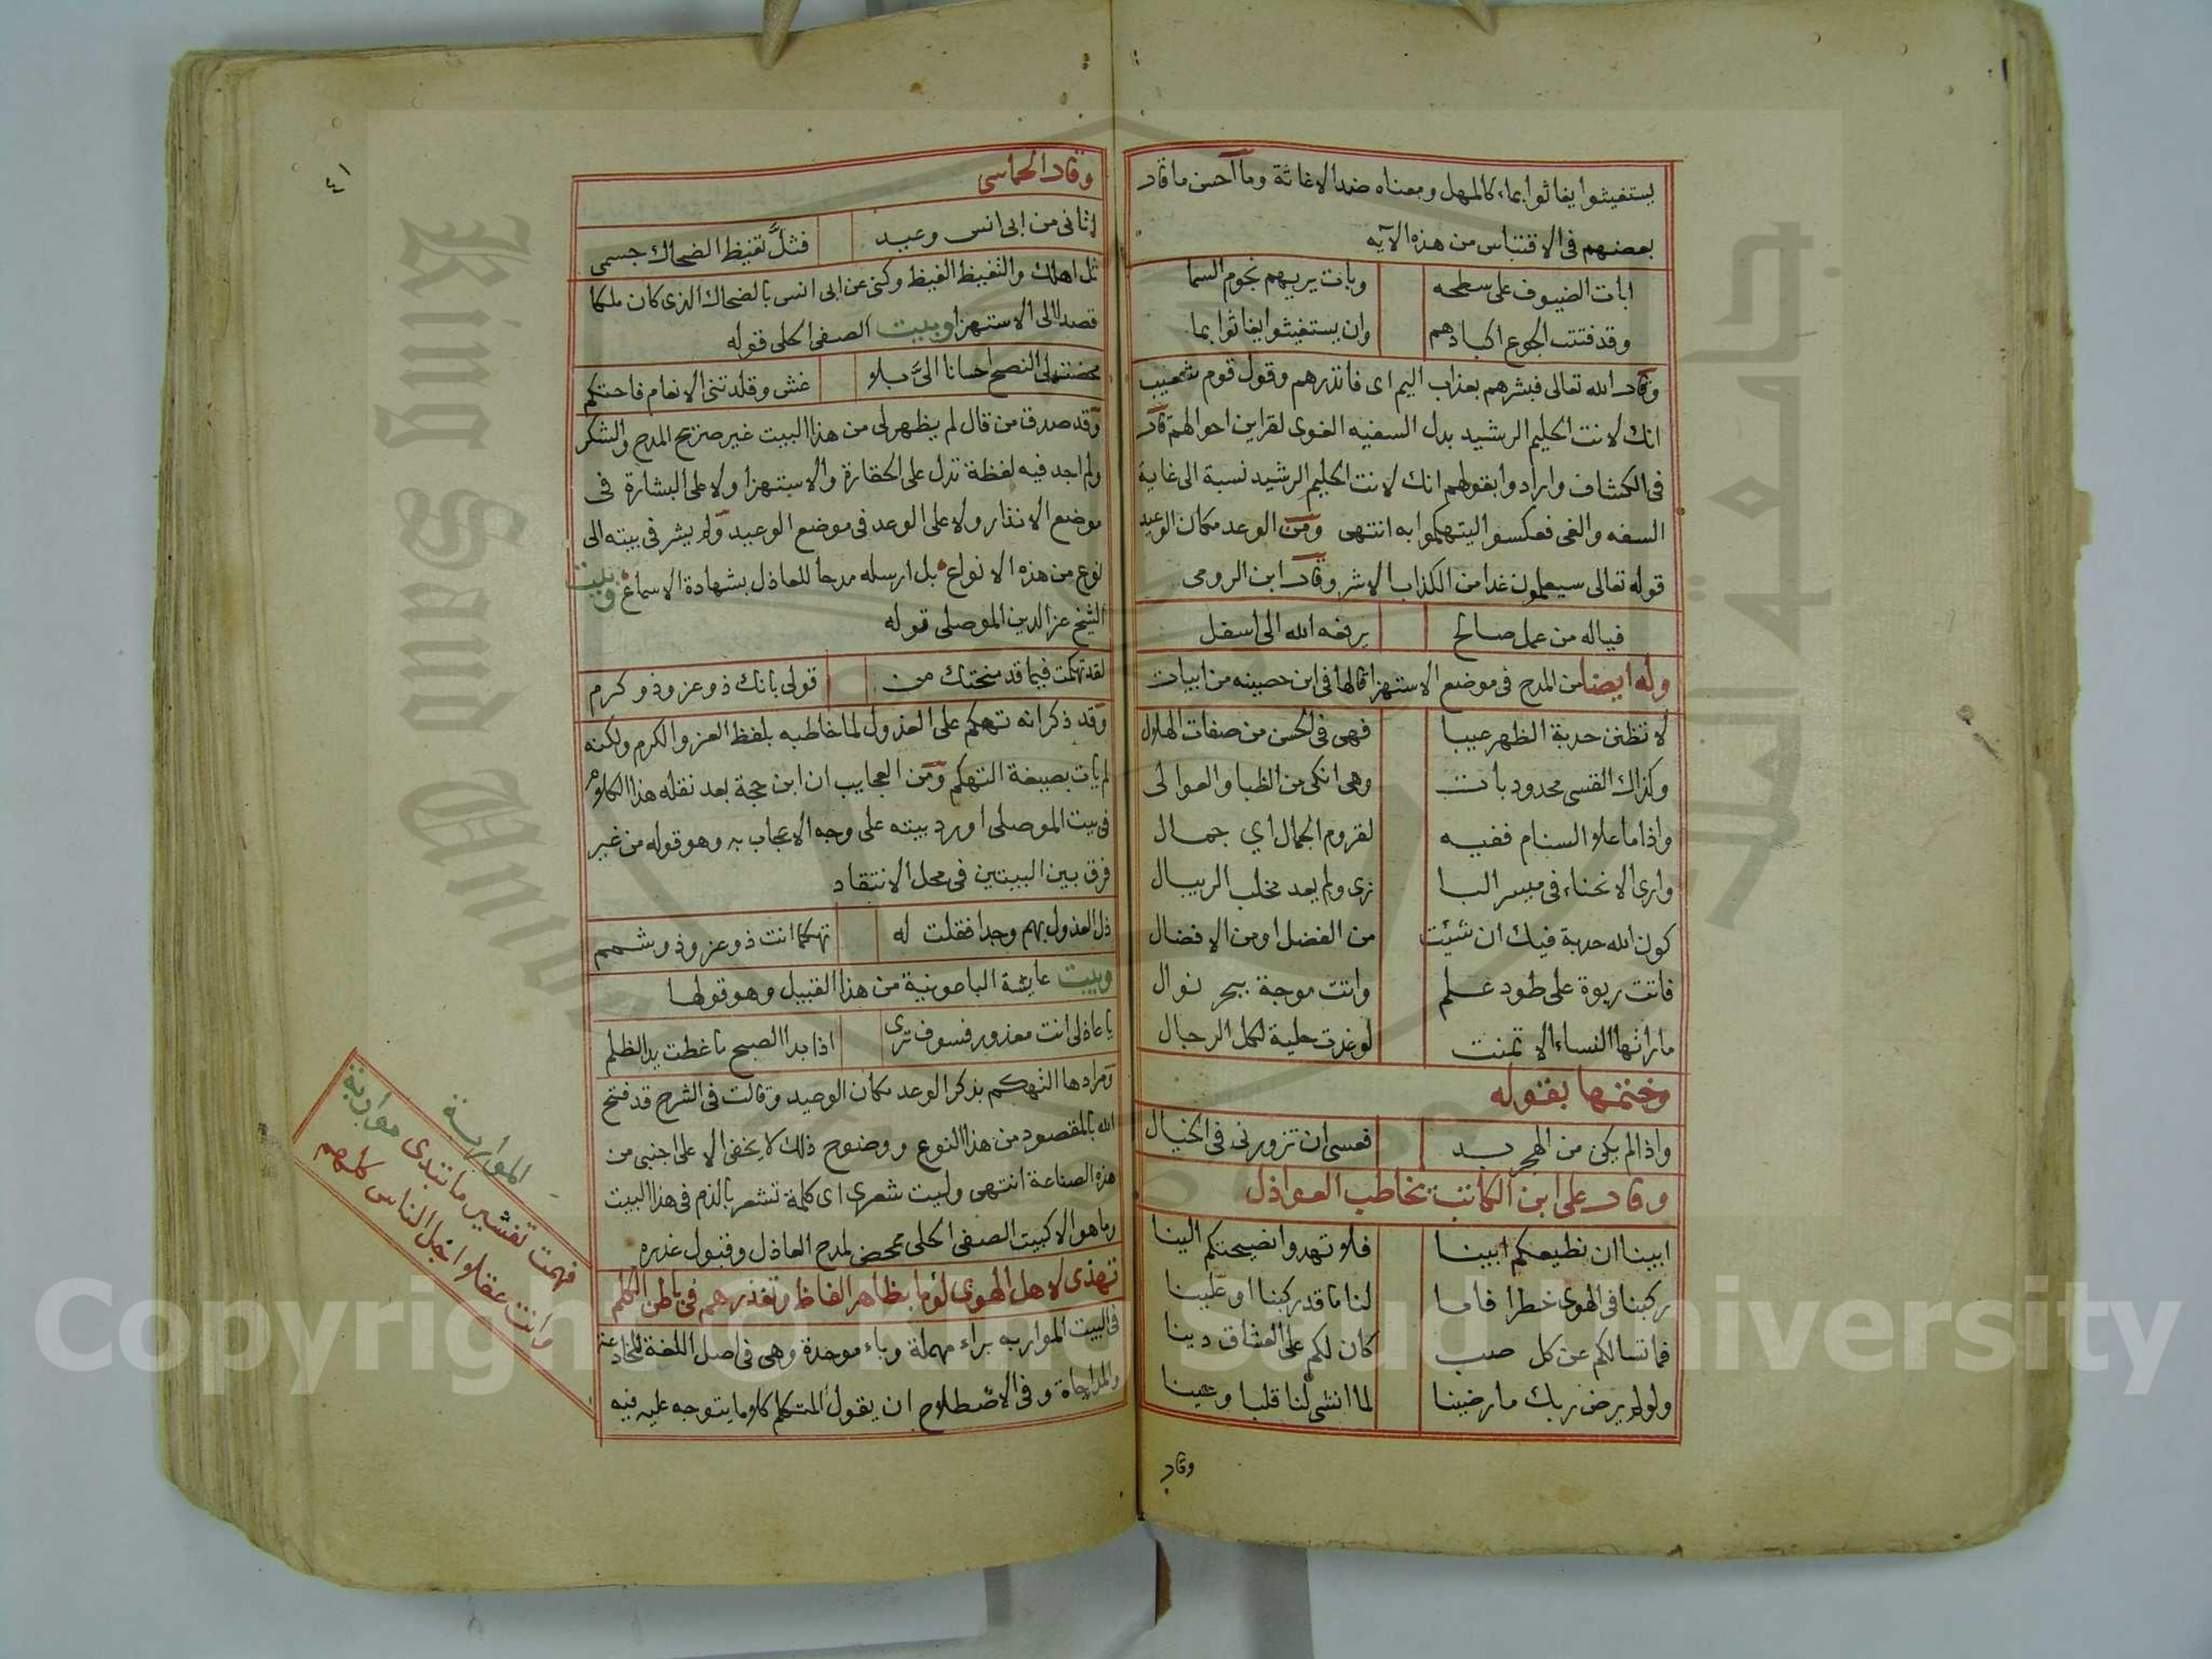 يستغيثوا يغاثوا بماء كالمهل ومعناه ضد الاغاثة وما احسن ما قال
بعضهم في الاقتباس من هذه الآيه
ابات الضيوف على سطحه وبات يريهم نجوم السما
وقد فتت الجوع اكبادهم وان يستغيثوا يغاثوا بما
وقال الله تعالى فبشرهم بعذاب اليم اى فانذرهم وقول قوم شعيب
انك لانت الحليم الرشيد بدل السفيه الغوى لقراين احوالهم قال
في الكشاف وارادوا بقولهم انك لانت الحليم الرشيد نسبة الى غاية
السفه والغى فعكسوا ليتهكموا به انتهى ومن الوعد مكان الوعيد
قوله تعالى سيعلمون غدا من الكذاب الاشر وقال ابن الرومى
فياله من عمل صالح يرفعه الله الى اسفل
وله ايضا من المدح في موضع الاستهزا قالها في ابن حصينه من ابيات
لا تظنن حدبة الظهر عيبا فهى في الحسن من صفات الهلال
وكذاك القسى محدودبات وهى انكى من الظبا والعوالى
واذا ما علا السنام ففيه لقروم الجمال اي جمال
وارى الانحناء في ميسر البا زى ولم يعد مخلب الريبال
كون الله حدبة فيك ان شئت من الفضل او من الافضال
فاتت ربوة على طود علم واتت موجة ببحر نوال
ما راتها النساء الا تمنت لو غدت حلية لكل الرجال
وختمها بقوله
واذا لم يكن من الهجر بد فعسى ان تزورنى في الخيال
وقال على ابن الكاتب يخاطب العواذل
ابينا ان نطيعكم ابينا فلا تهدوا نصيحتكم الينا
ركبنا في الهوى خطرا فاما لنا ما قد ركبنا او علينا
فما تسالكم عن كل صب كان لكم على العشاق دينا
ولو لم يرض ربك ما رضينا لما انشى لنا قلبا وعينا
وقال
٤١
وقال الحماسى
اثانى من ابى انس وعيد فثلّ تغيظ الضحاك جسمى
ثل اهلك والتغيظ الغيظ وكنى عن ابى انس بالضحاك الذى كان ملكا
قصدا الى الاستهزا وبيت الصفى الحلى قوله
محضتنى النصح احسانا الىّ بلا غش وقلدتنى الانعام فاحتكم
وقد صدق من قال لم يظهر لى من هذا البيت غير صريح المدح والشكر
ولم اجد فيه لفظة تدل على الحقارة والاستهزا ولا على البشارة في
موضع الانذار ولا على الوعد في موضع الوعيد ولم يشر في بيته الى
نوع من هذه الانواع بل ارسله مدحا للعاذل بشهادة الاسماع وبيت
الشيخ عز الدين الموصلى قوله
لقد تهكمت فيما قد منحتك من قولى بانك ذو عز وذو كرم
وقد ذكر انه تهكم على العذول لما خاطبه بلفظ العز والكرم ولكنه
لم يات بصيغة التهكم ومن العجايب ان ابن حجة بعد نقله هذا الكلام
في بيت الموصلى اورد بيته على وجه الاعجاب به وهو قوله من غير
فرق بين البيتين في محل الانتقاد
ذل العذول بهم وجدا فقلت له تهكما انت ذو عز وذو شمم
وبيت عايشة الباعونية من هذا القبيل وهو قولها
يا عاذلى انت معذور فسوف ترى اذا بدا الصبح ما غطت يد الظلم
ومرادها التهكم بذكر الوعد مكان الوعيد وقالت في الشرح قد فتح
الله بالمقصود من هذا النوع ووضوح ذلك لا يخفى الا على اجنبى من
هذه الصناعة انتهى وليت شعرى اى كلمة تشعر بالذم في هذا البيت
وما هو الا كبيت الصفى الحلى محض لمدح العاذل وقبول عذره
تهذى لاهل الهوى لؤما بظاهر الفاظ وتعذرهم في باطن الكلم
في البيت المواربه براء مهملة وباء موحدة وهى في اصل اللغة المخادعة
والمداجاة وفي الاصطلاح ان يقول المتكلم كلاما يتوجه عليه فيه
المواربة
فهمت تفشير ما تبدى مواربة
وانت عقلا واخبل الناس كلهم